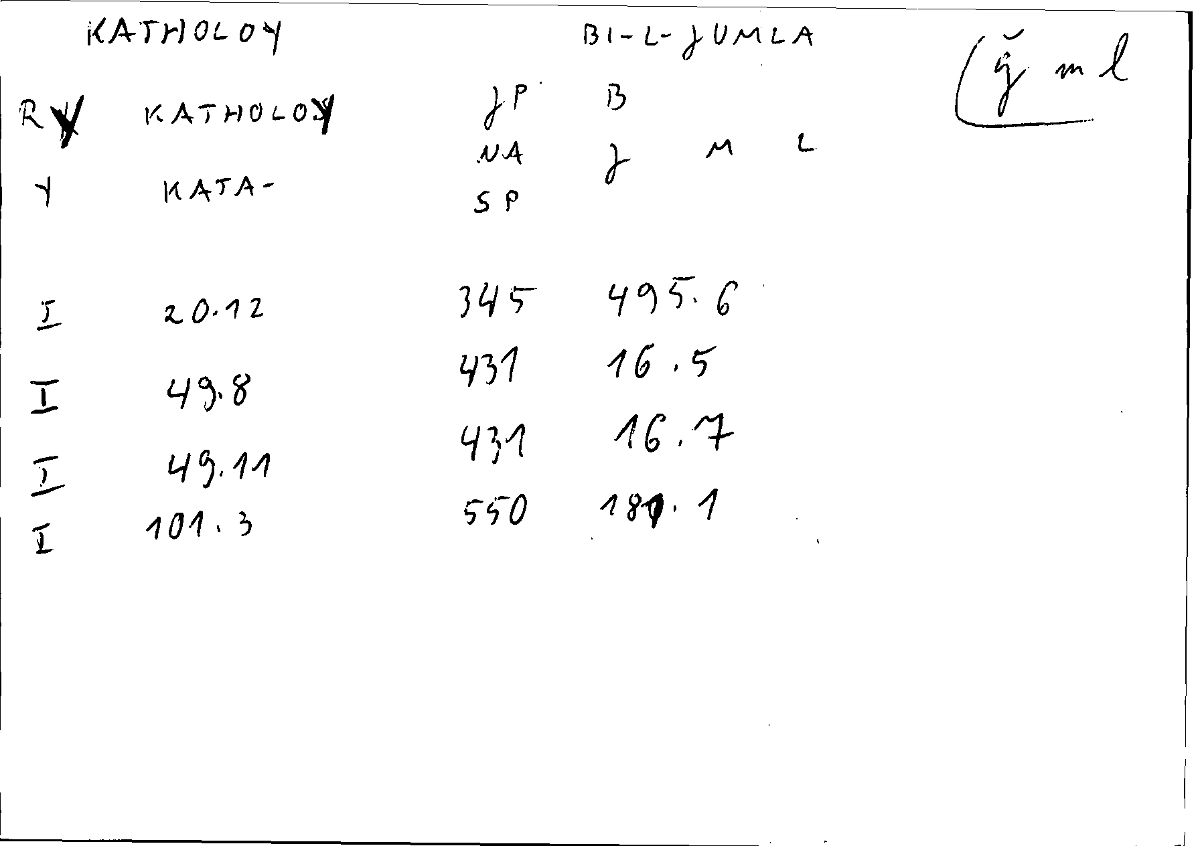 KATHOLOY BI-L-JUMLA ğ m l
RY KATHOLOY JP B
NA J M L
Y KATA- SP
I 20.12 345 495.6
I 49.8 431 16.5
I 49.11 431 16.7
I 101.3 550 181.1